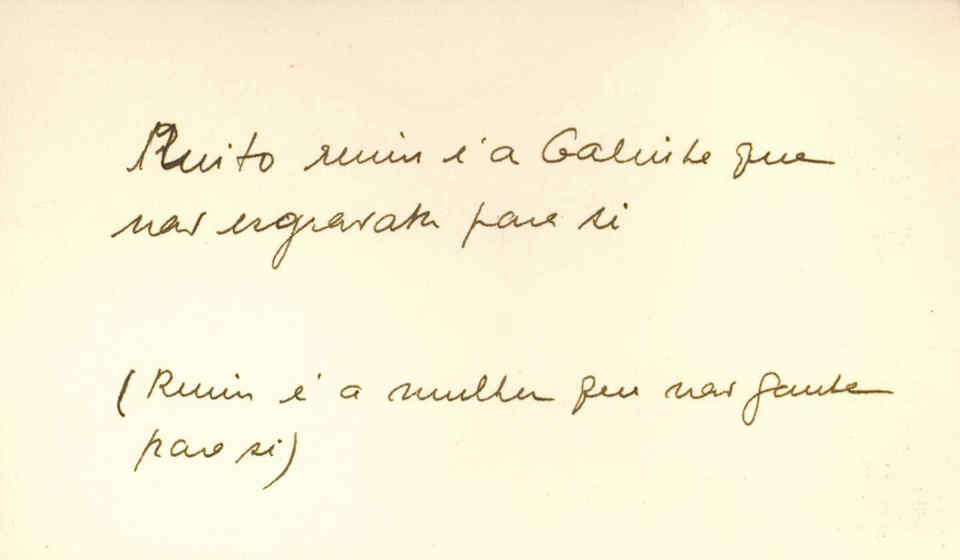 Muito ruim é a Galinha que
não esgravata para si
(Ruim é a mulher que não ganha
para si)